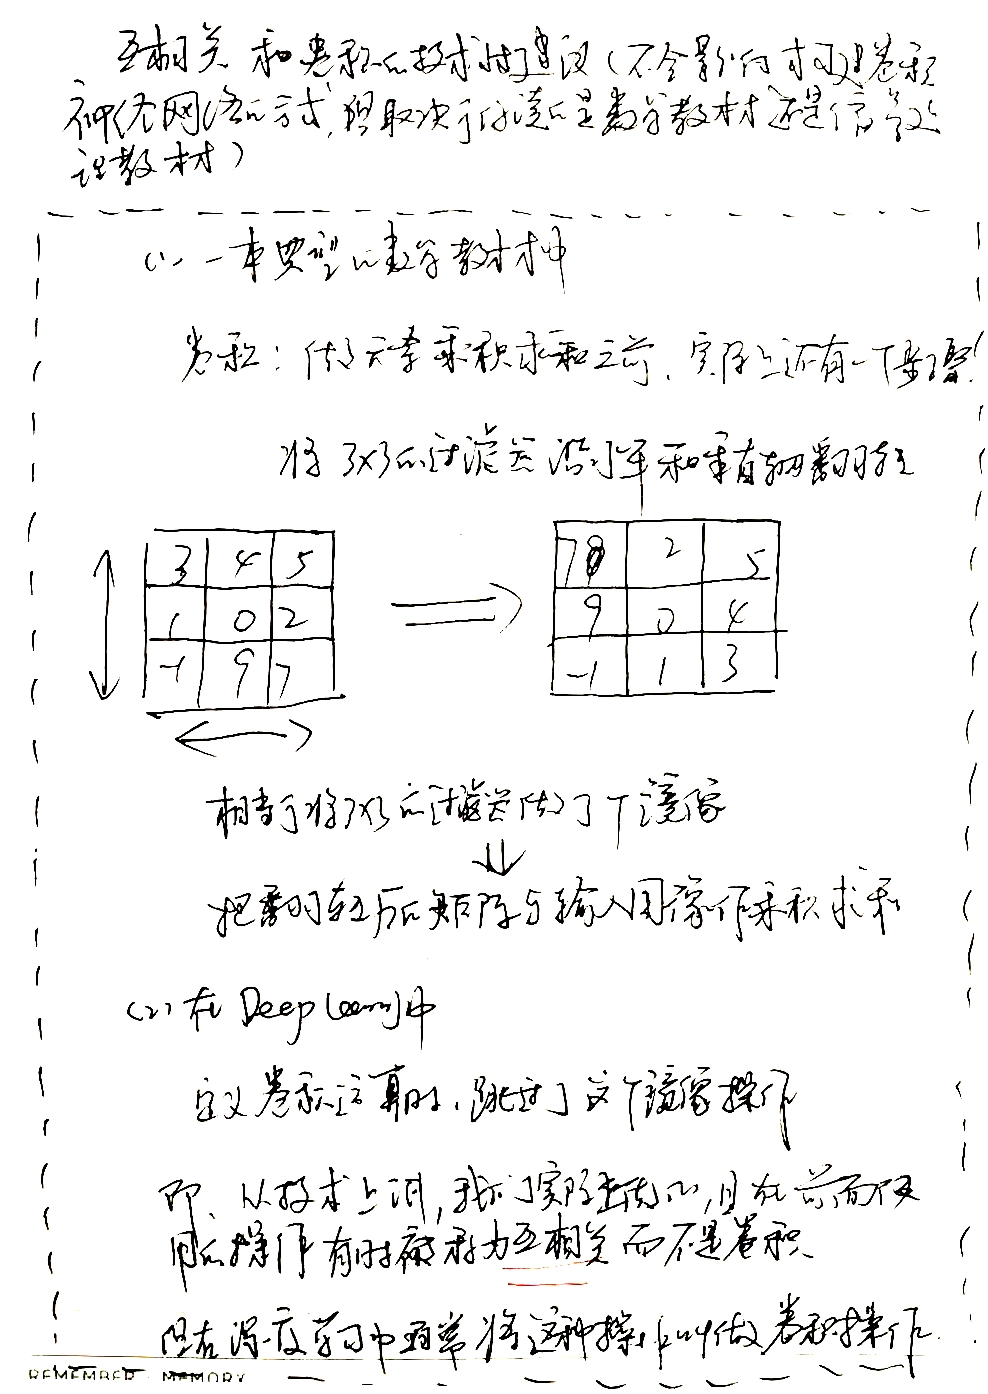 互相关和卷积的技术性建议(不会影响构建卷积
神经网络的方式,但取决于你读的是数学教材还是信号处
理教材)
(1). 一本典型的数学教材中
卷积:做元素乘积求和之前,实际上还有一个步骤!
将3×3的过滤器沿水平和垂直轴翻转
3 4 5 7 2 5
1 0 2 9 0 4
-1 9 7 -1 1 3
相当于将3×3的过滤器做了个镜像
把翻转后的矩阵与输入图像作乘积求和
(2) 在 Deep Learning中
定义卷积运算时,跳过了这个镜像操作
即、从技术上讲,我们实际上 的,且在前面使
用的操作有时被称为互相关而不是卷积
但在深度学习中通常将这种操作叫做卷积操作.
REMEMBER MEMORY